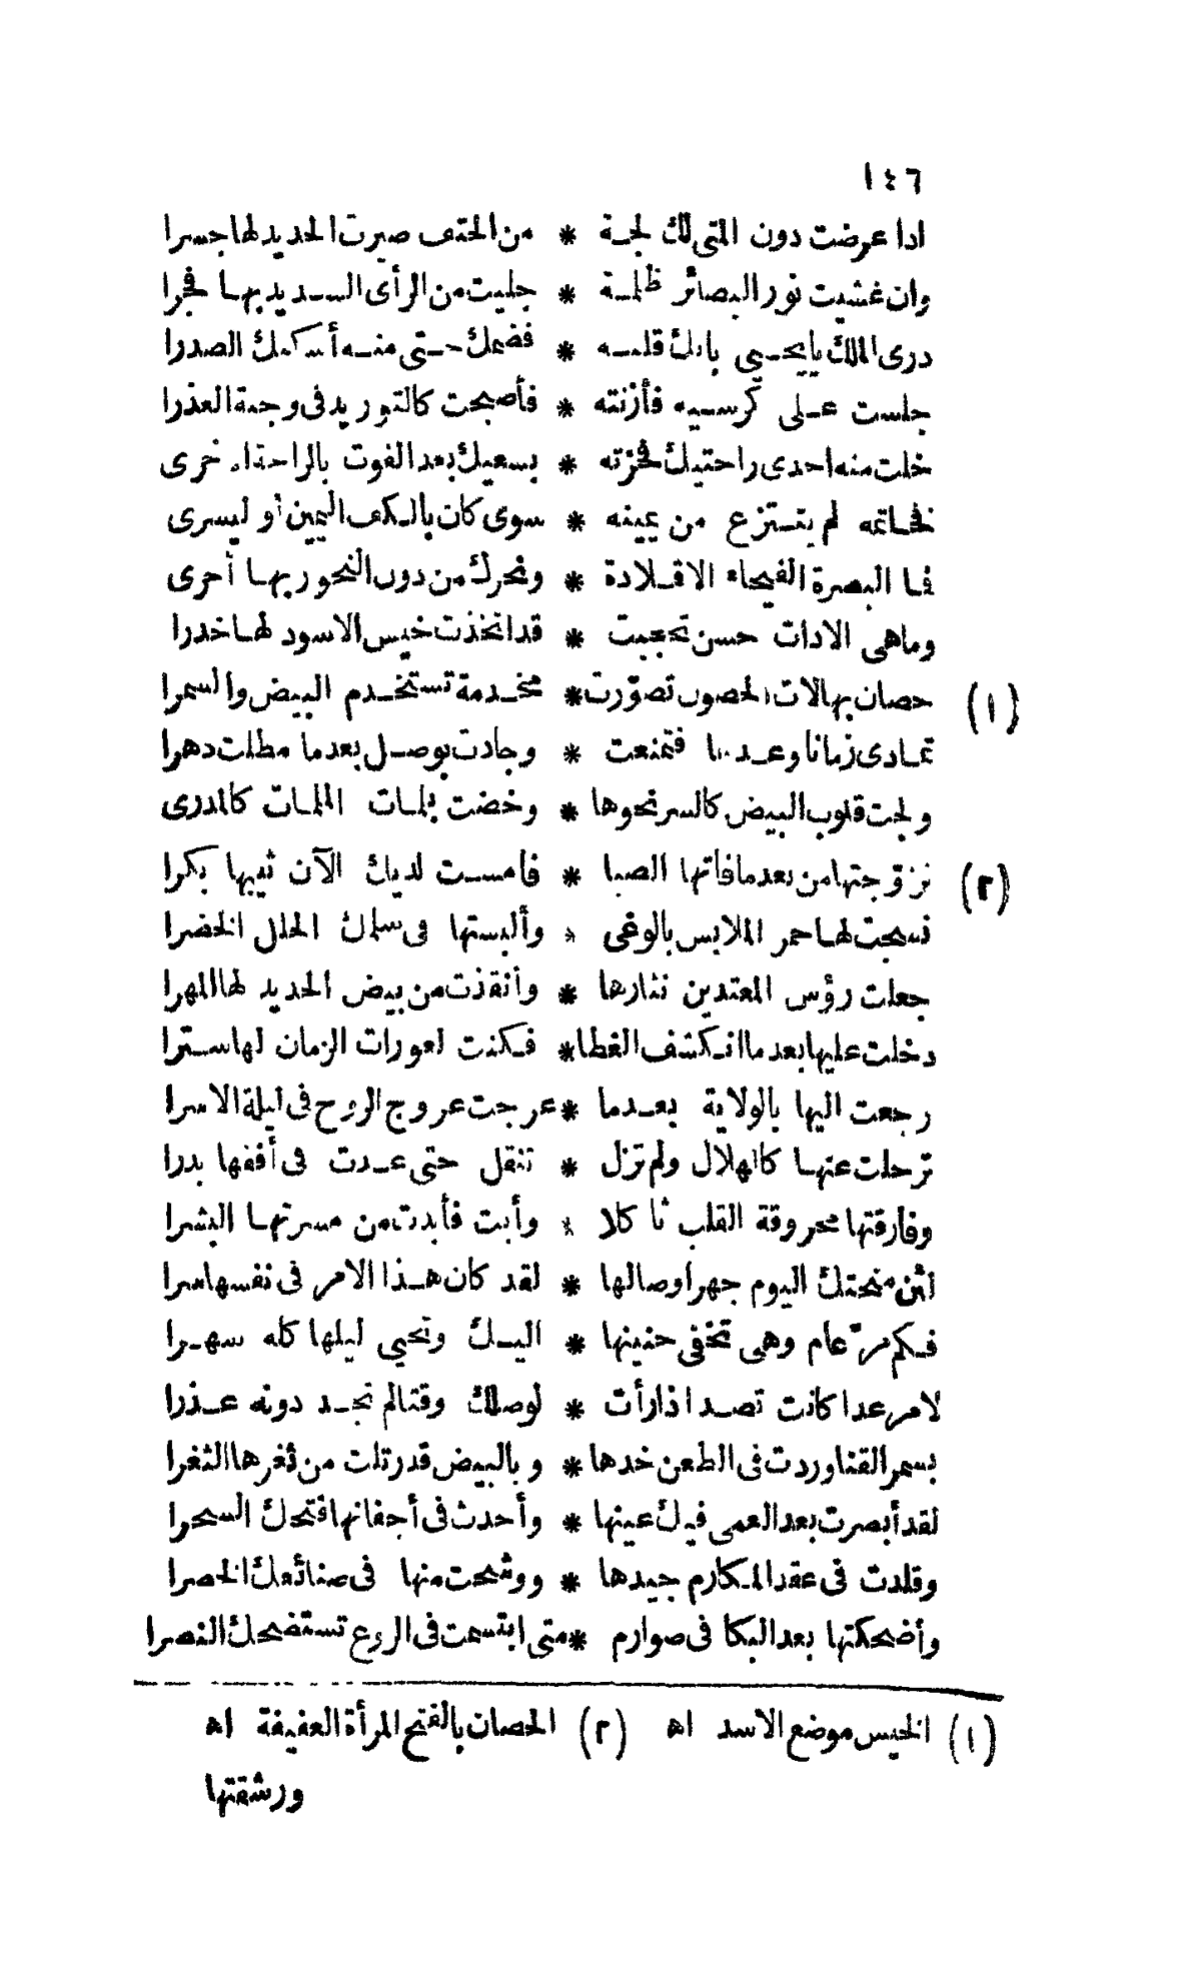 ١٤٦
اذا عرضت دون المتى لك لجة * من الحتف صيرت الحديد لها جسرا
وان غشيت نور البصائر ظلمة * جليت من الرأى السديد بها فجرا
درى الملك يا يحيي بانك قلبه * فضمك حتى منه أسكنك الصدرا
جلست على كرسيه فأزنته * فأصبحت كالتوريد فى وجنة العذرا
خلت منه احدى راحتيك فحزته * بسعيك بعد الفوت بالراحة اخرى
فخاتمه لم ينتزع من يمينه * سوى كان بالكف اليمين أو ليسرى
فما البصرة الفيحاء الا قلادة * ونحرك من دون النحور بها أحرى
وما هى الا ذات حسن تحجبت * قد اتخذت خيس الاسود لها خدرا
(١) حصان بهالات الحصون تصوّرت * مخدمة تستخدم البيض والسمرا
تمادى زمانا وعدها فتمنعت * وجادت بوصل بعدما مطلت دهرا
ولجت قلوب البيض كالسر نحوها * وخضت بلمات الملمات كالمدرى
(٢) تزوجتها من بعد ما فاتها الصبا * فامست لديك الآن ثيبها بكرا
نسجت لها حمر الملابس بالوغى * وألبستها فى سلمك الحلل الخضرا
جعلت رؤس المعتدين نثارها * وأنقذت من بيض الحديد لها المهرا
دخلت عليها بعد ما انكشف الغطا * فكنت لعورات الزمان لها سترا
رجعت اليها بالولاية بعدما * عرجت عروج الروح فى ليلة الاسرا
ترحلت عنها كالهلال ولم تزل * تنقل حتى عدت فى أفقها بدرا
وفارقتها محروقة القلب ثاكلا * وأبت فأبدت من مسرتها البشرا
لئن منحتك اليوم جهرا وصالها * لقد كان هذا الامر فى نفسها سرا
فكم مرّ عام وهى تخفى حنينها * اليك وتحيي ليلها كله سهرا
لامر عدا كانت تصد اذا رأت * لوصلك وقتا لم تجد دونه عذرا
بسمر القنا وردت فى الطعن خدها * وبالبيض قد رتلت من ثغرها الثغرا
لقد أبصرت بعد العمى فيك عينها * وأحدث فى أجفانها فتحك السحرا
وقلدت فى عقد المكارم جيدها * ووشحت منها فى صنائعك الخصرا
وأضحكتها بعد البكا فى صوارم * متى ابتسمت فى الروع تستضحك النصرا
(١) الخيس موضع الاسد اه (٢) الحصان بالفتح المرأة العفيفة اه
ورشقتها